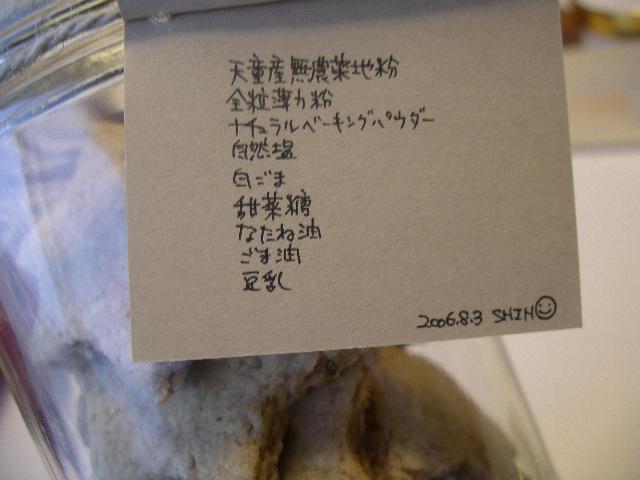 天童産無農薬地粉
全粒薄力粉
ナチュラルベーキングパウダー
自然塩
白ごま
甜菜糖
なたね油
ごま油
豆乳
2006.8.3 SHIN